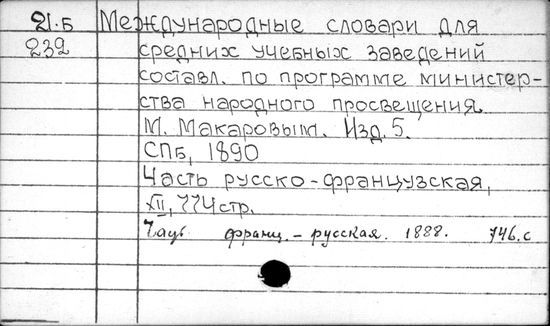 21.Б Международные словари для
232 средних учебных заведений
составл. по программе министер-
ства народного просвещения
М. Макаровым. Изд. 5.
СПБ, 1890
Часть русско-французская,
XII, 774стр.
франц. - русская. 1888. 746.с